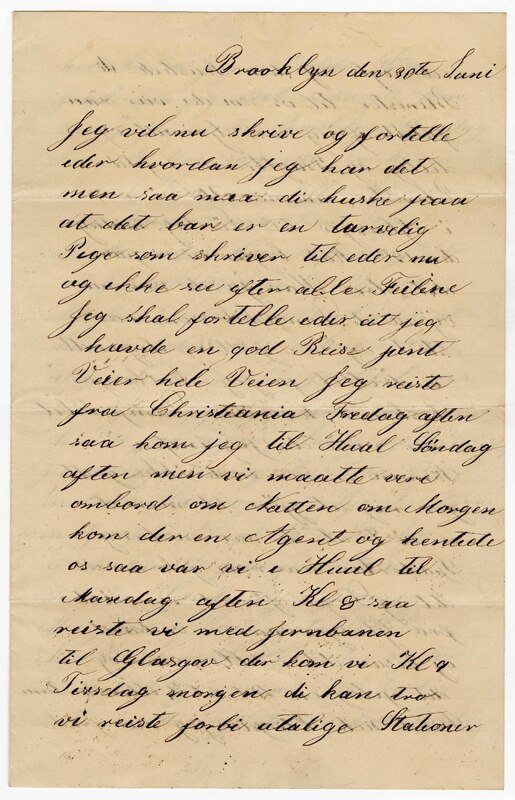 Brooklyn den 30te Juni
Jeg vil nu skrive og fortelle
eder hvordan jeg har det
men saa maa di huske paa
at det bare er en tarvelig
Pige som skriver til eder nu
og ikke see efter alle Feilene
Jeg skal fortelle eder at jeg
havde en god Reise pent
Veier hele Veien Jeg reiste
fra Christiania Fredag aften
saa kom jeg til Hual Söndag
aften men vi maatte vere
ombord om Natten om Morgen
kom der en Agent og hentede
os saa var vi i Huul til
Mandag aften Kl 8 saa
reiste vi med jernbanen
til Glasgov der kom vi Kl 9
Tirsdag morgen di kan tro
vi reiste forbi utalige Stationer